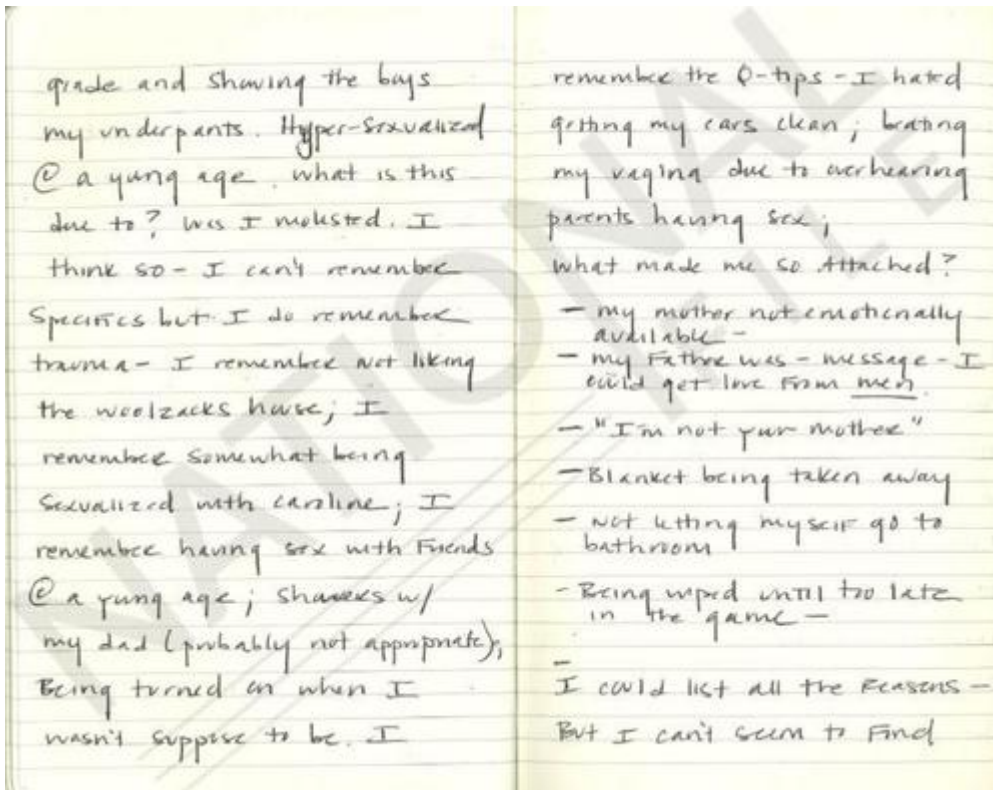 grade and showing the boys
my underpants. Hyper-Sexualized
@ a yung age. what is this
due to? Was I molested. I
think so - I can't remember
Specifics but I do remember
trauma - I remember not liking
the woolzacks house; I
remember somewhat being
sexualized with caroline; I
remember having sex with Friends
@ a yung age; showers w/
my dad (probably not appropriate);
Being turned on when I
wasn't suppose to be. I
remember the Q-tips - I hated
getting my ears clean; beating
my vagina due to overhearing
parents having sex;
What made me so Attached?
- my mother not emotionally
available -
- my Father was - message - I
could get love From men.
- "I'm not your mother"
- Blanket being taken away
- Not letting myself go to
bathroom
- Being wiped until too late
in the game -
-
I could list all the Reasons -
But I can't seem to Find
NATIONAL
FILE